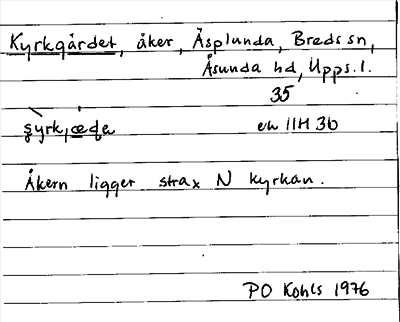 Kyrkgärdet, åker, Äsplunda, Breds sn,
Åsunda hd, Upps. l.
35
ek 11H 3b
Åkern ligger strax N kyrkan.
PO Kohls 1976